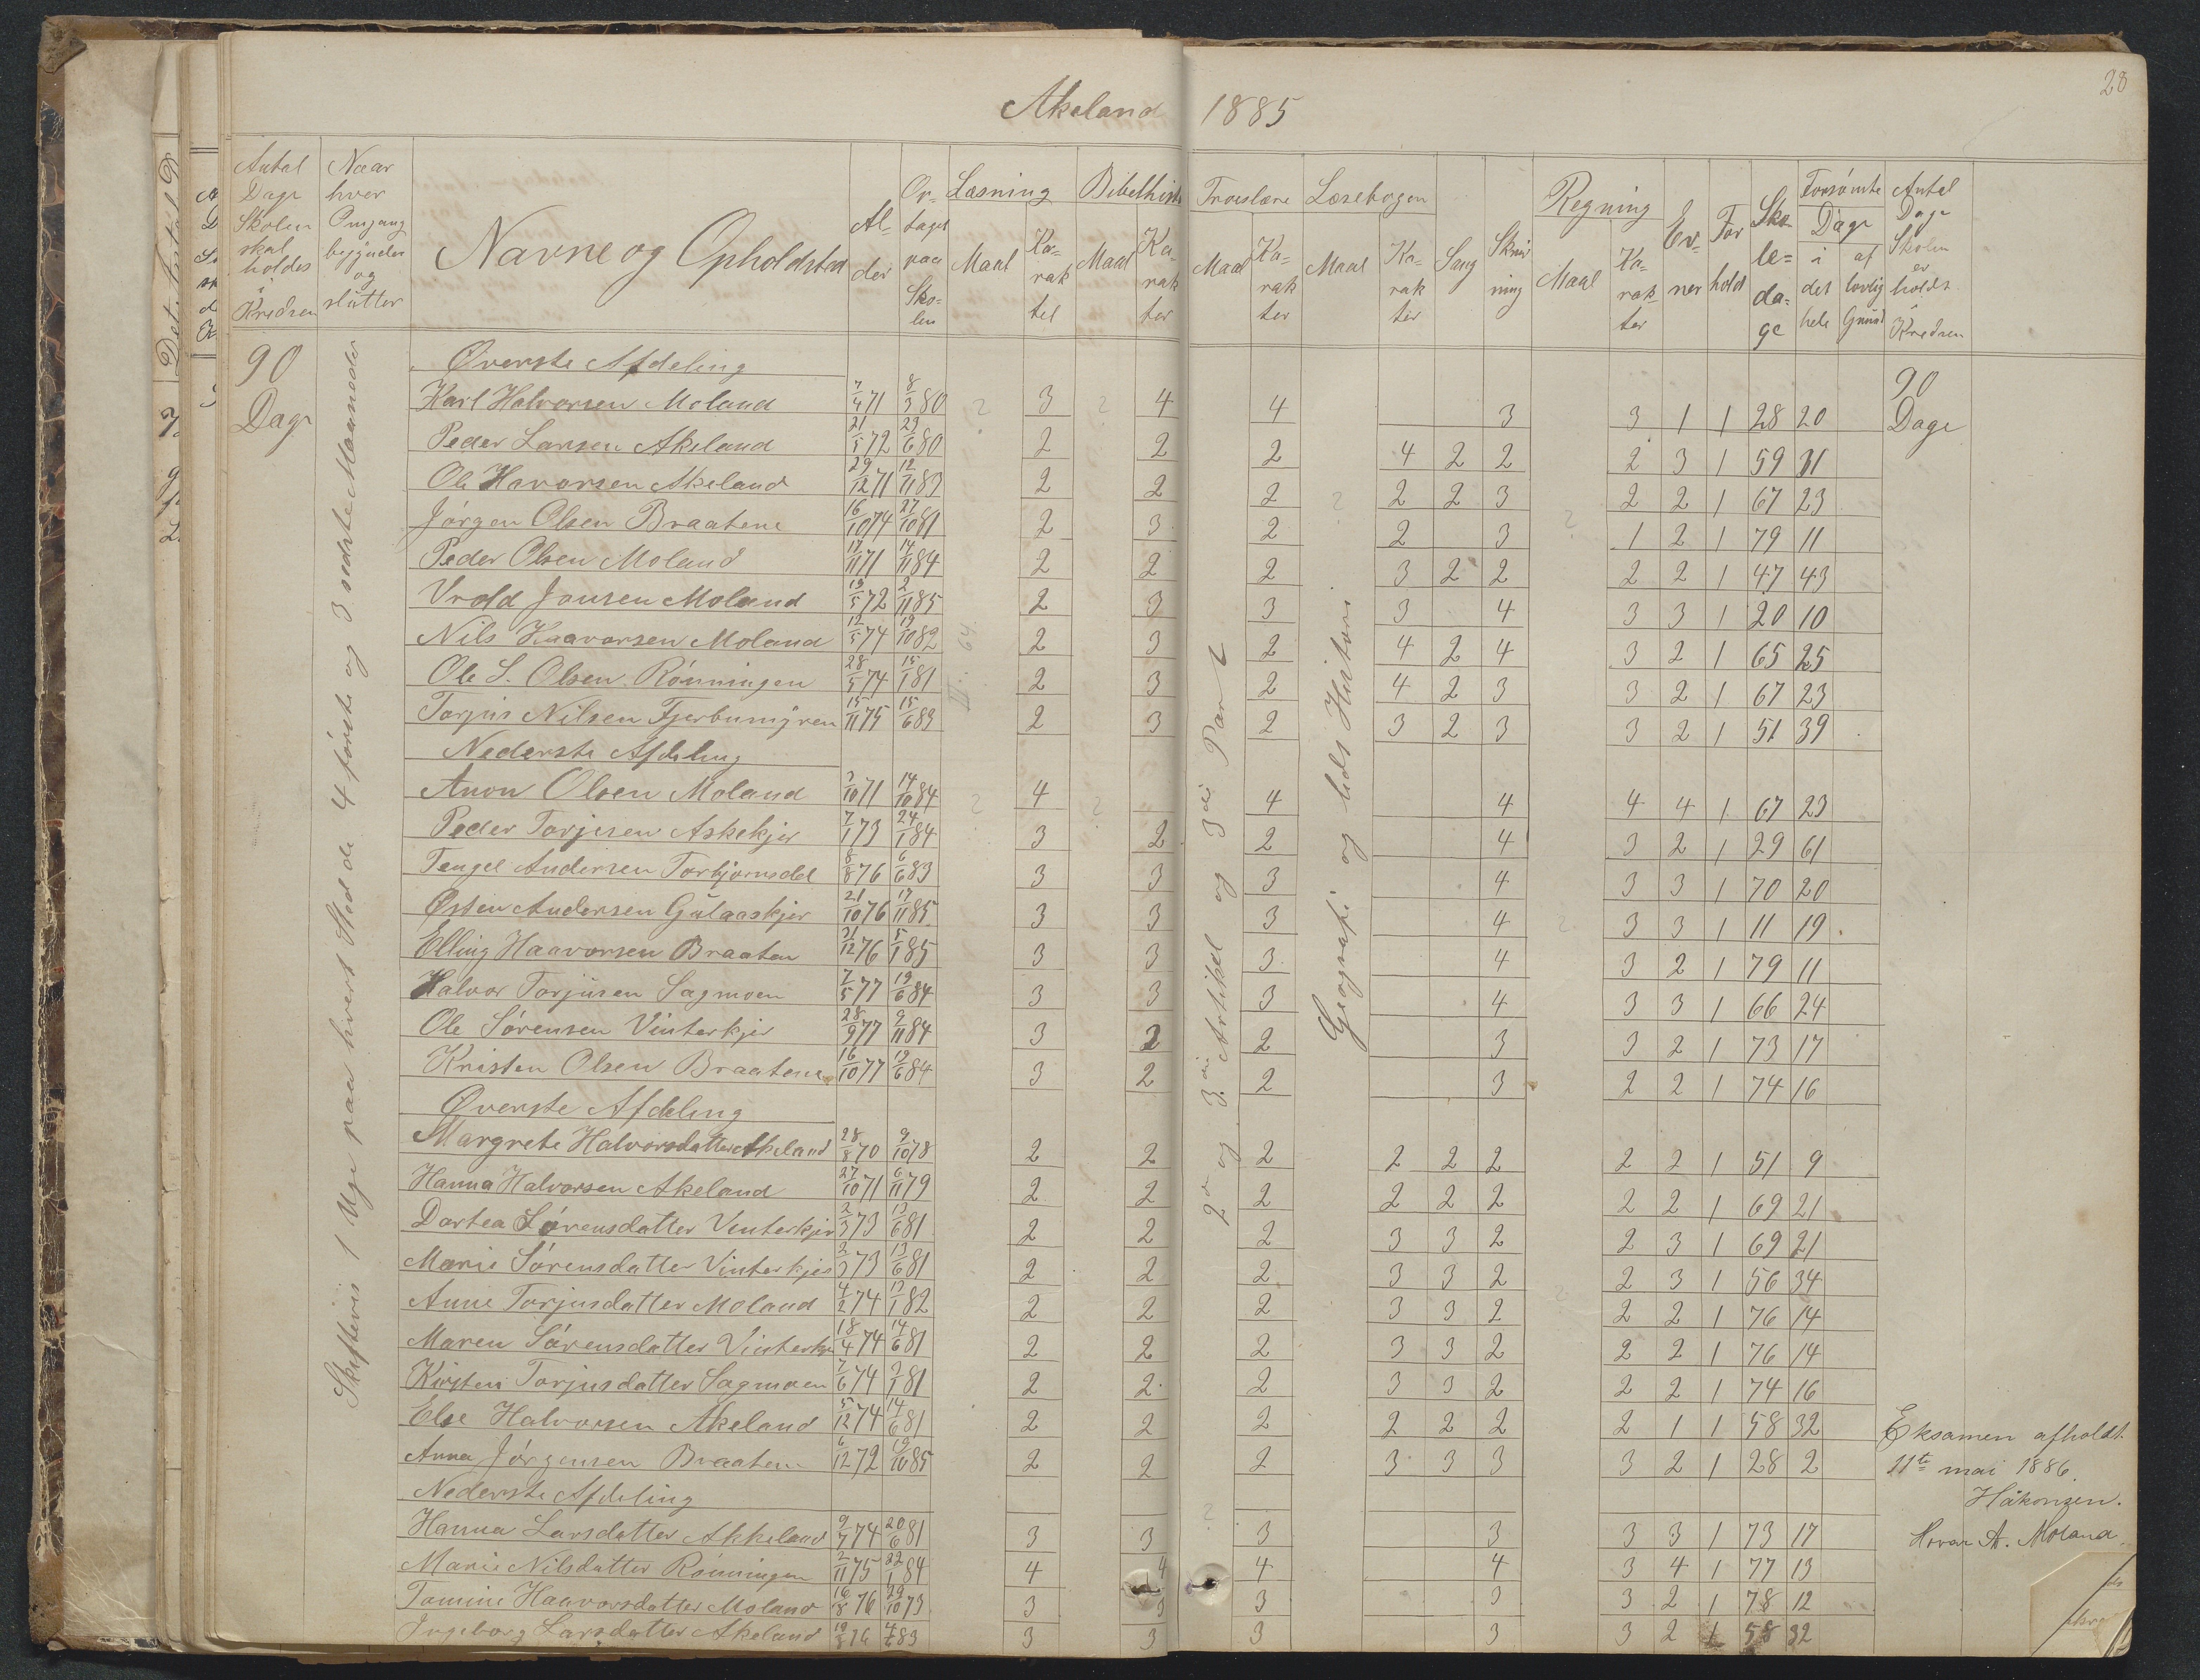 28
Akeland 1885
Antal Dage Skolen skal holdes i Kredsen
Naar hver Omgang begynder og slutter
Navne og Opholdsted
Alder
Optaget paa Skolen
Læsning Maal Karakter
Bibelhist Maal Karakter
Troeslære Maal Karakter
Læsebogen Maal Karakter
Sang
Skrivning
Regning Maal Karakter
Evner
Forhold
Skoledage
Forsømte Dage i det hele af lovlig Grund
Antal Dage Skolen er holdt i Kredsen
90 Dage
Skiftevis 1 Uge paa hvert Sted de 4 første og 3 sidste Maaneder
2den og 3die Artikel og 3die Part
Geografi og lidt Historie
Øverste Afdeling
90 Dage
Karl Halvorsen Moland 7/4 71 8/3 80 3 4 4 3 3 1 1 28 20
Peder Larsen Akeland 21/5 72 29/6 80 2 2 2 4 2 2 2 3 1 59 31
Ole Havorsen Akeland 29/12 71 12/11 83 2 2 2 2 2 3 2 2 1 67 23
Jørgen Olsen Braatene 16/10 74 27/10 81 2 3 2 2 3 1 2 1 79 11
Peder Olsen Moland 17/11 71 14/11 84 2 2 2 3 2 2 2 2 1 47 43
Vrold Jonsen Moland 19/5 72 2/11 85 2 3 3 3 4 3 3 1 20 10
Nils Haavorsen Moland 12/5 74 19/10 82 2 3 2 4 2 4 3 2 1 65 25
Ole S. Olsen Rønningen 28/5 74 15/1 81 2 3 2 4 2 3 3 2 1 67 23
Torjus Nilsen Fjerbumyren 15/11 75 15/6 83 2 3 2 3 2 3 3 2 1 51 39
Nederste Afdeling
Anon Olsen Moland 3/10 71 14/10 84 4 4 4 4 4 1 67 23
Peder Torjusen Askekjer 7/1 73 24/1 84 3 2 2 4 3 2 1 29 61
Tengel Andersen Torbjørnsdal 8/8 76 6/6 83 3 3 3 4 3 3 1 70 20
Østen Andersen Gulaaskjer 21/10 76 17/11 85 3 3 3 4 3 3 1 11 19
Elling Haavorsen Braaten 31/12 76 5/1 85 3 3 3 4 3 2 1 79 11
Halvor Torjusen Sagmoen 7/5 77 19/6 84 3 3 3 4 3 3 1 66 24
Ole Sørensen Vinterkjer 28/9 77 9/11 84 3 2 2 3 3 2 1 73 17
Kristen Olsen Braatene 16/10 77 19/6 84 3 2 2 3 2 2 1 74 16
Øverste Afdeling
Margrete Halvorsdatter Akeland 28/8 70 9/10 78 2 2 2 2 2 2 2 2 1 51 9
Hanna Halvorsen Akeland 27/10 71 6/11 79 2 2 2 2 2 2 2 2 1 69 21
Dortea Sørensdatter Vinterkjer 2/3 73 13/6 81 2 2 2 3 3 2 2 3 1 69 21
Marie Sørensdatter Vinterkjer 2/3 73 13/6 81 2 2 2 3 3 2 2 3 1 56 34
Anne Torjusdatter Moland 4/2 74 13/1 82 2 2 2 3 3 2 2 2 1 76 14
Maren Sørensdatter Vinterkjer 18/4 74 14/6 81 2 2 2 3 3 2 2 2 1 76 14
Kirsten Torjusdatter Sagmoen 7/6 74 3/1 81 2 2 2 3 3 2 2 2 1 74 16
Else Halvorsen Akeland 5/12 74 14/6 81 2 2 2 2 2 2 2 1 1 58 32
Anna Jørgensen Braaten 6/12 72 19/10 85 2 2 2 3 3 3 3 2 1 28 2
Nederste Afdeling
Hanna Larsdatter Akkeland 9/7 74 20/6 81 3 3 3 3 3 3 1 73 17
Marie Nilsdatter Rønningen 2/11 75 22/1 84 4 4 4 4 3 4 1 77 13
Tomine Haavorsdatter Moland 16/8 76 29/10 73 3 3 3 3 3 2 1 78 12
Ingeborg Larsdatter Akeland 19/8 76 4/6 83 3 3 3 3 3 2 1 58 32
Eksamen afholdt
11te mai 1886.
Håkonsen.
Hovar A. Moland